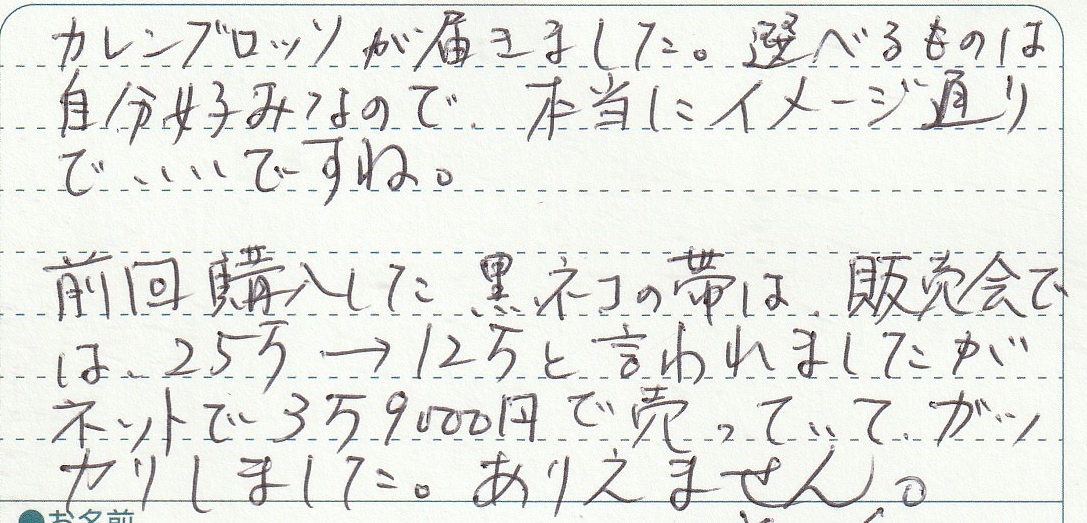 カレンブロッソが届きました。選べるものは
自分好みなので、本当にイメージ通り
で、いいですね。
前回購入した黒ネコの帯は、販売会で
は、25万→12万と言われましたが
ネットで3万9000円で売っていて、ガッ
カリしました。ありえません。
●お名前